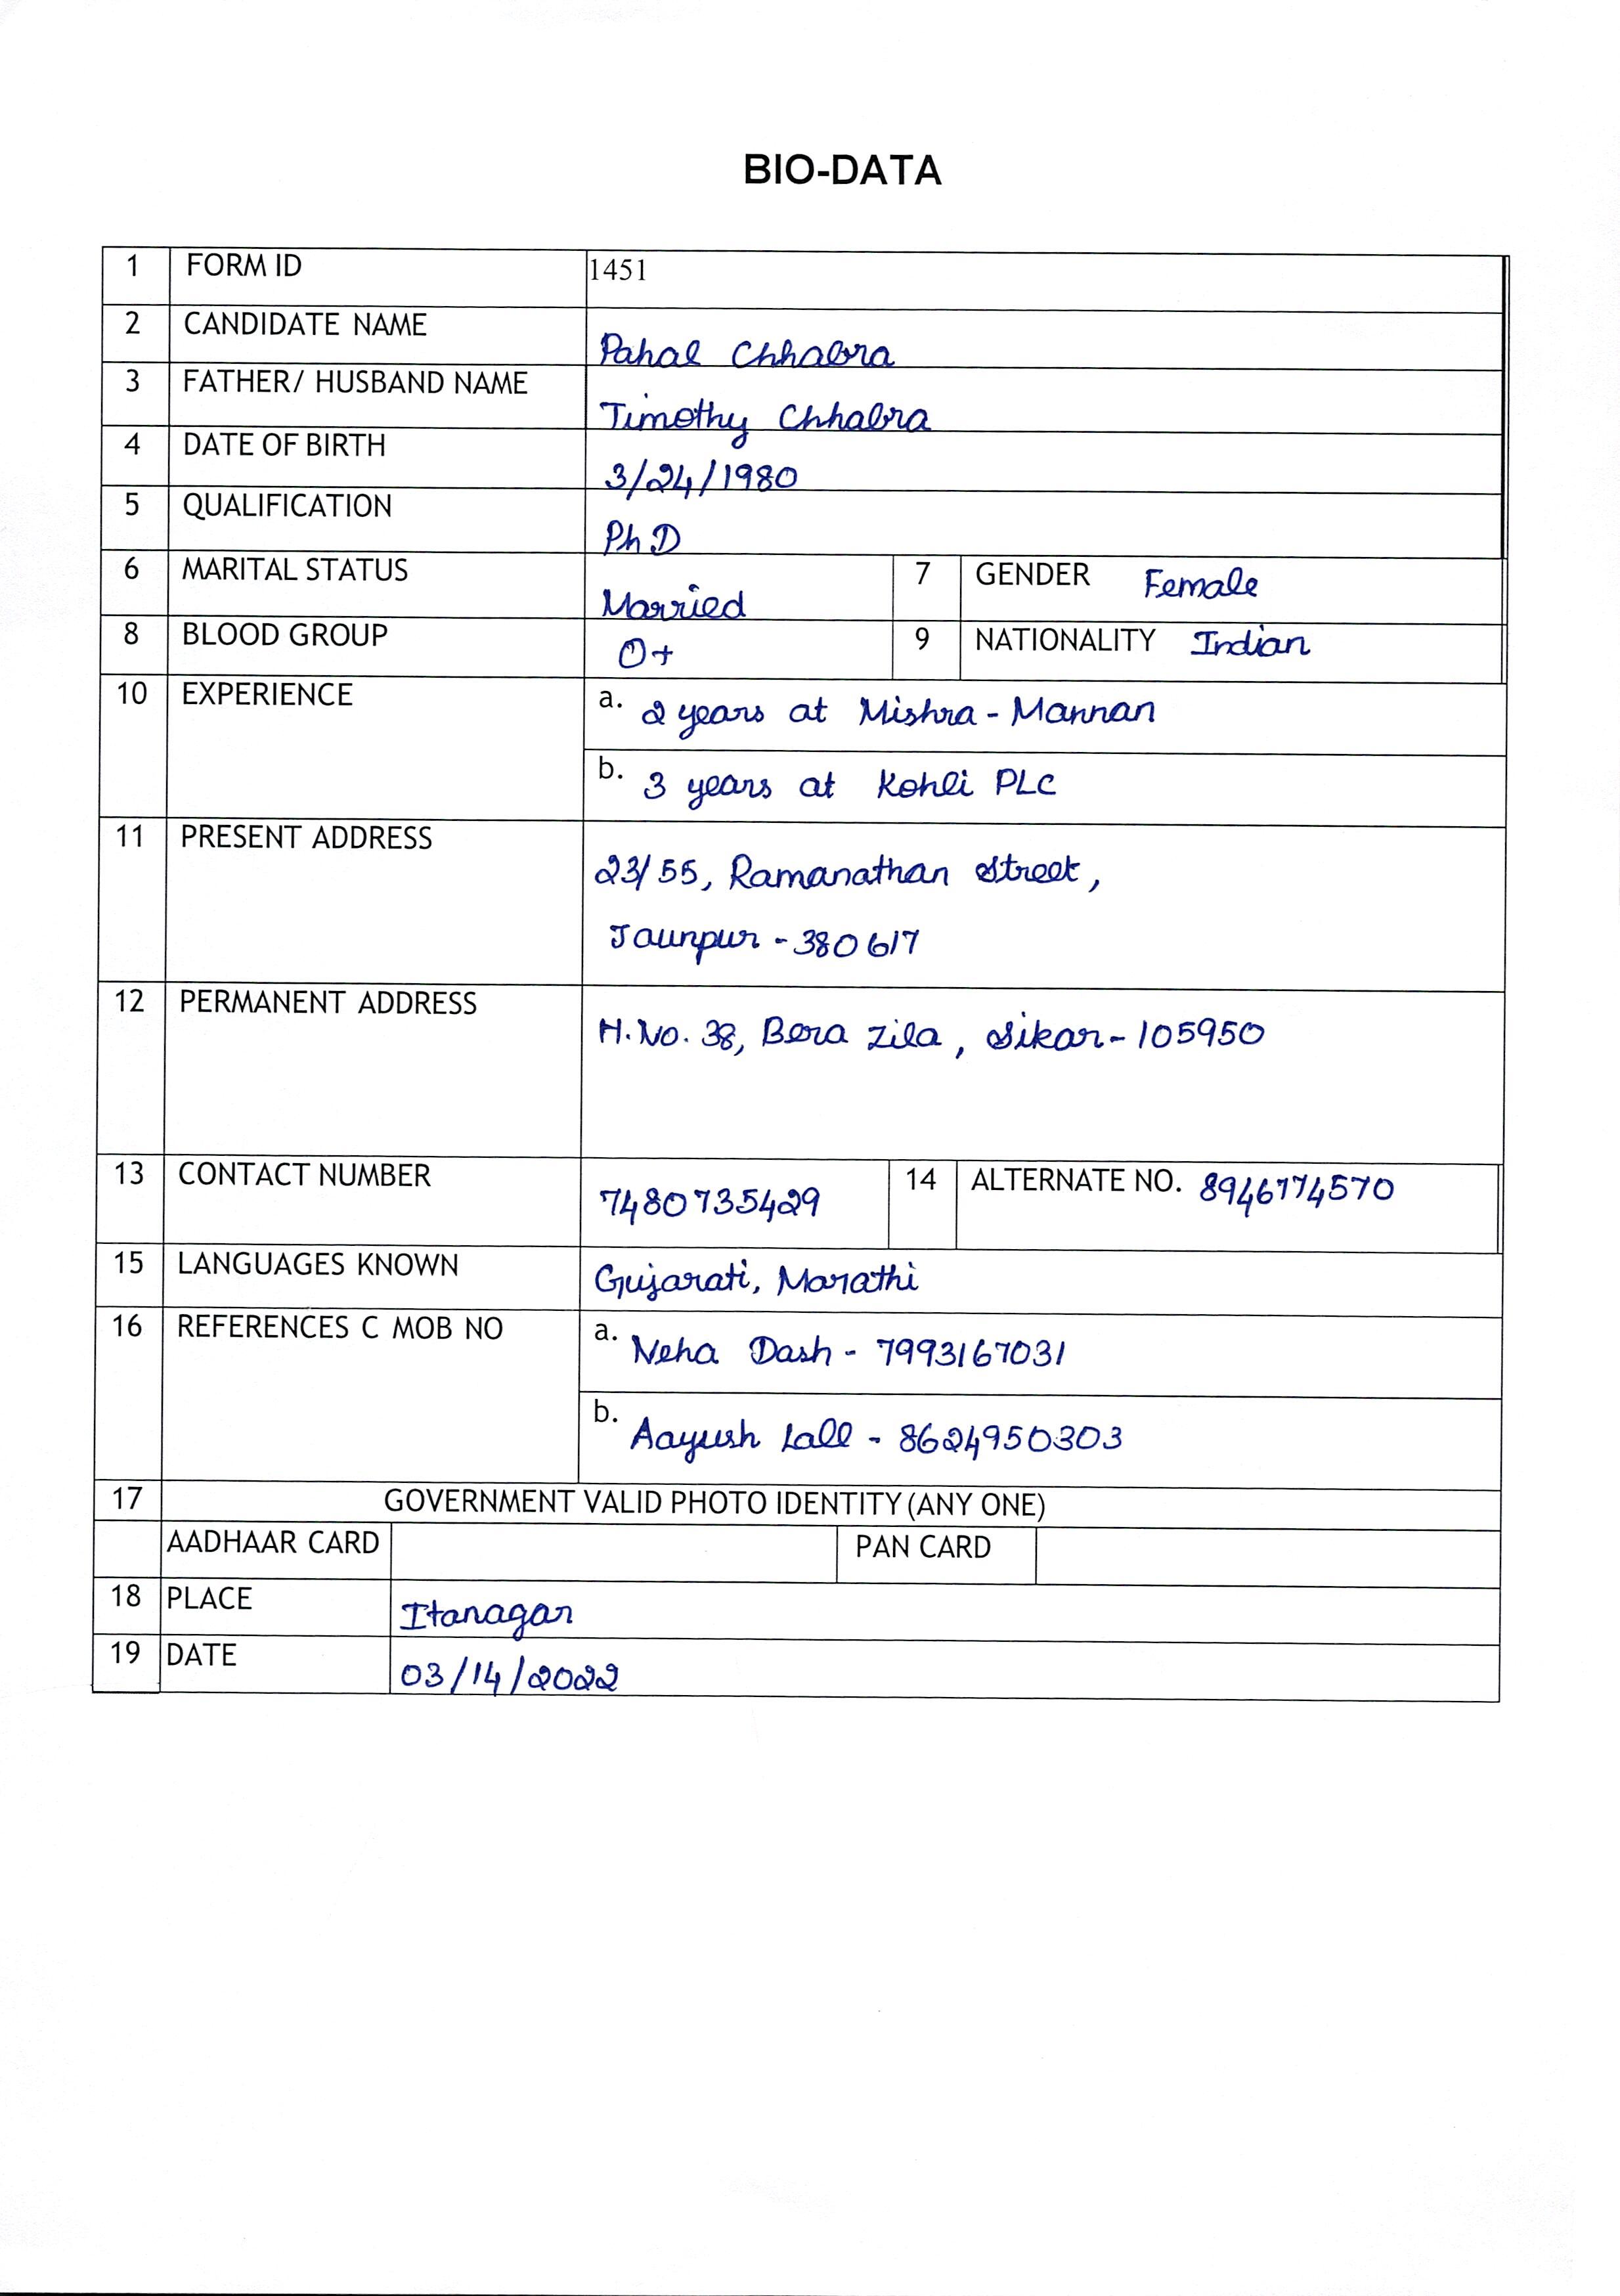 BIO-DATA
1 FORM ID 1451
2 CANDIDATE NAME Pahal Chhabra
3 FATHER/ HUSBAND NAME Timothy Chhabra
4 DATE OF BIRTH 3/24/1980
5 QUALIFICATION PhD
6 MARITAL STATUS Married 7 GENDER Female
8 BLOOD GROUP O+ 9 NATIONALITY Indian
10 EXPERIENCE a. 2 years at Mishra - Mannan
b. 3 years at Kohli PLC
11 PRESENT ADDRESS 23/55, Ramanathan Street,
Jaunpur - 380617
12 PERMANENT ADDRESS H.No. 38, Bera Zila, Sikar - 105950
13 CONTACT NUMBER 7480735429 14 ALTERNATE NO. 8946774570
15 LANGUAGES KNOWN Gujarati, Marathi
16 REFERENCES C MOB NO a. Neha Dash - 7993167031
b. Aayush Lall - 8624950303
17 GOVERNMENT VALID PHOTO IDENTITY (ANY ONE)
AADHAAR CARD PAN CARD
18 PLACE Itanagar
19 DATE 03/14/2022